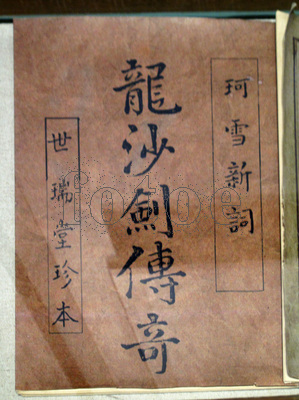 珂雪新詞
龍沙劍傳奇
世瑞堂珍本
fotoe